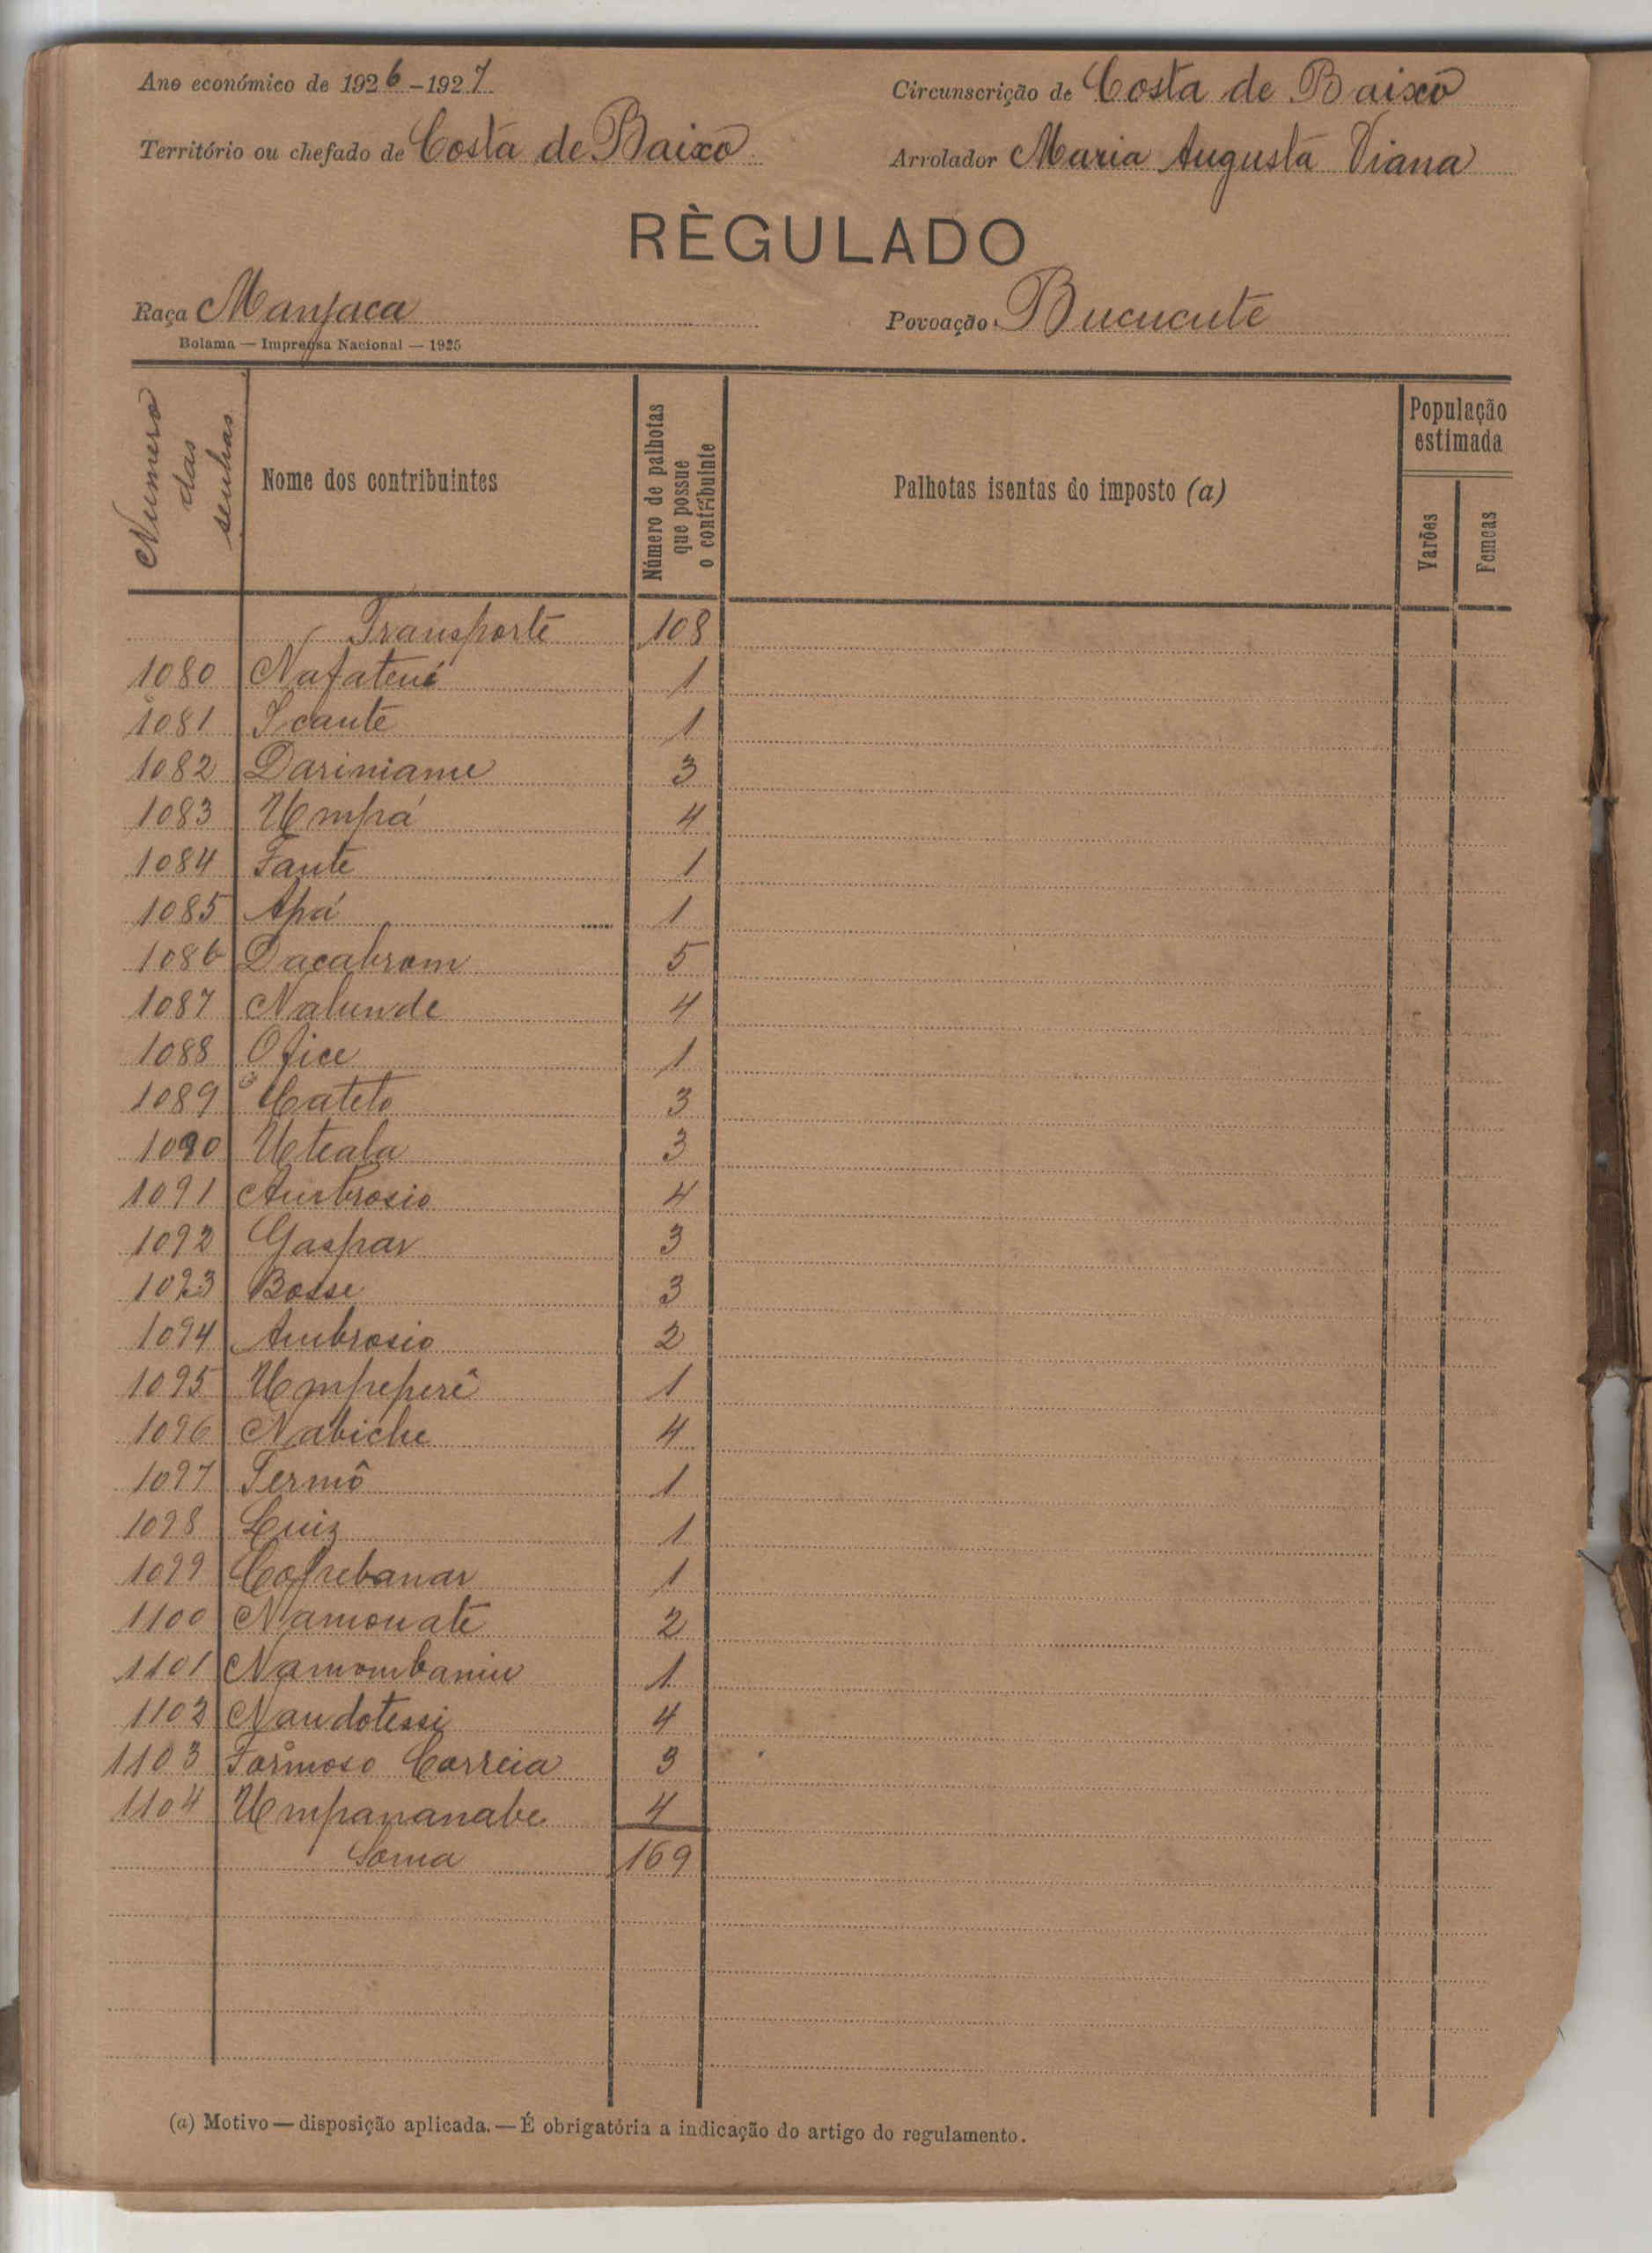 Ano económico de 1926-1927
Circunscrição de Costa de Baixo
Território ou chefado de Costa de Baixo
Arrolador Maria Augusta Viana
RÈGULADO
Raça Manjaca
Povoação Bucucute
Bolama — Imprensa Nacional — 1925
Numero das senhas
Nome dos contribuintes
Número de palhotas que possue o contribuinte
Palhotas isentas do imposto (a)
População estimada
Varões
Femeas
Transporte 108
1080 Nafatené 1
1081 Icante 1
1082 Dariniame 3
1083 Umpá 4
1084 Fante 1
1085 Apá 1
1086 Dacabrom 5
1087 Nalunde 4
1088 Ofice 1
1089 Cateto 3
1090 Uteala 3
1091 Ambrosio 4
1092 Gaspar 3
1093 Bosse 3
1094 Ambrosio 2
1095 Umpeperê 1
1096 Nabiche 4
1097 Termô 1
1098 Luiz 1
1099 Cofrebanar 1
1100 Namonate 2
1101 Namombaniu 1
1102 Nandotessi 4
1103 Formoso Correia 3
1104 Umpananabe 4
Soma 169
(a) Motivo — disposição aplicada. — É obrigatória a indicação do artigo do regulamento.